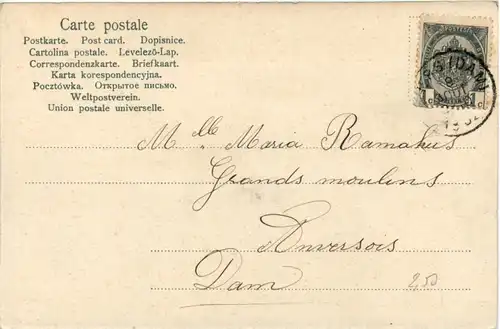 Carte postale
Postkarte. Post card. Dopisnice.
Cartolina postale. Levelező-Lap.
Correspondenzkarte. Briefkaart.
Karta korespondencyjna.
Pocztówka. Открытое письмо.
Weltpostverein.
Union postale universelle.
Mlle Maria Ramakers
Grands moulins
Anversois
Dam
2,50